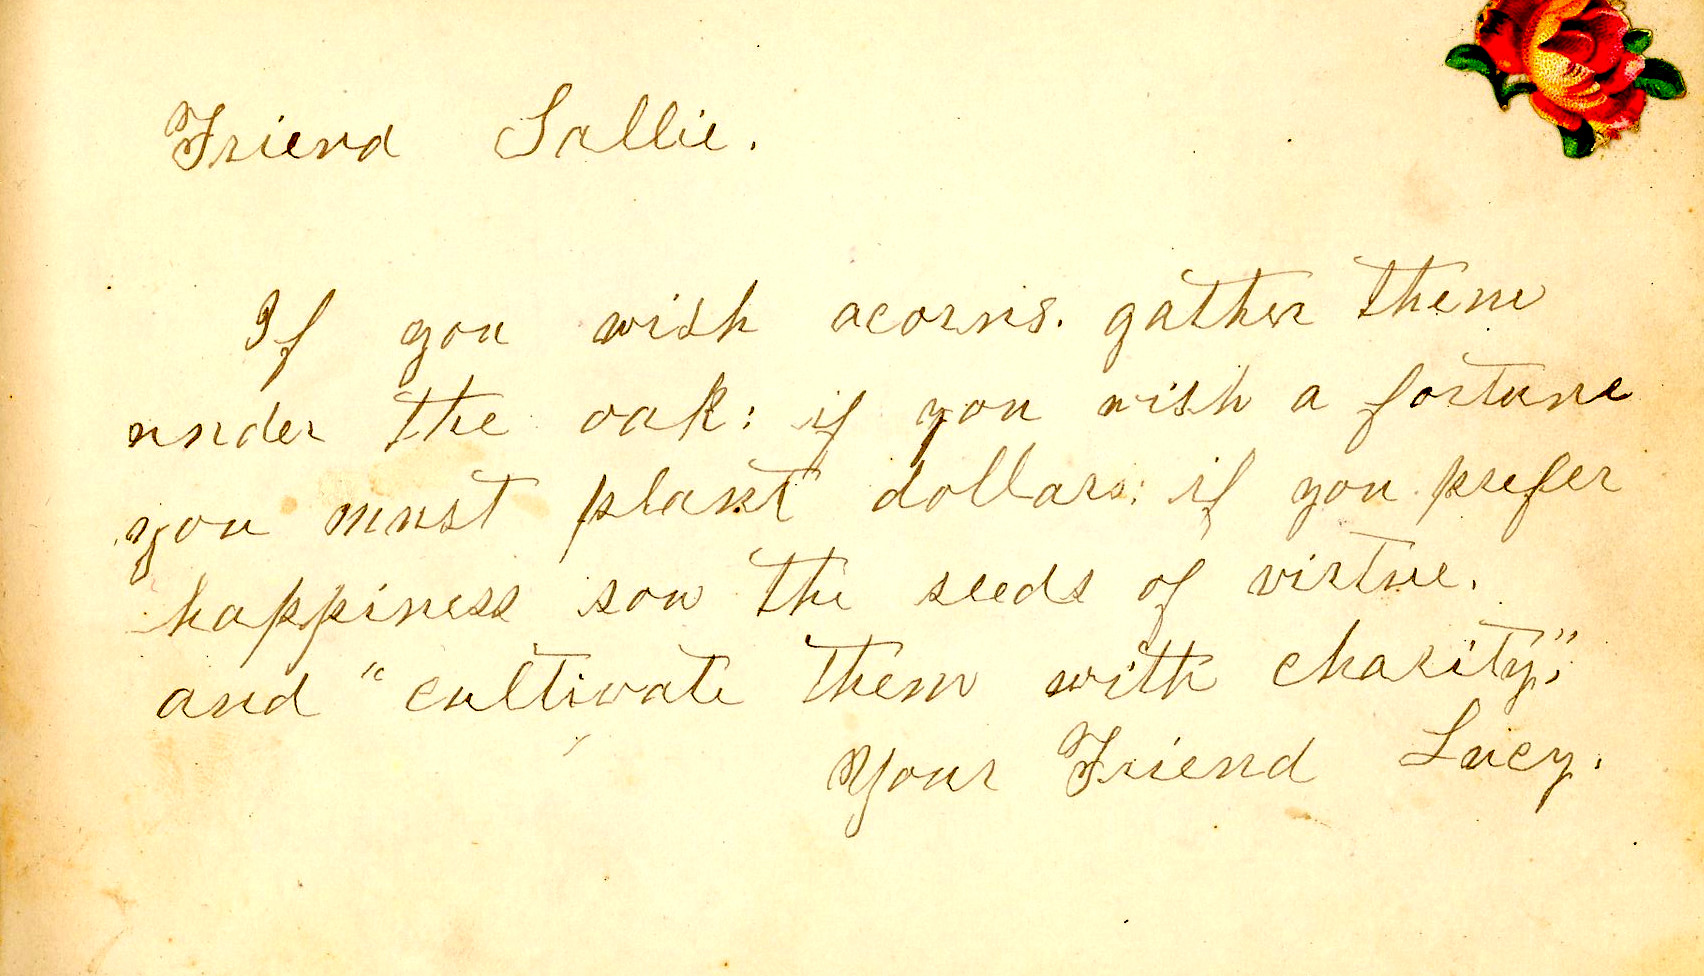 Friend Sallie.
If you wish acorns. gather them
under the oak: if you wish a fortune
you must plant dollars: if you prefer
happiness sow the seeds of virtue.
and "cultivate them with charity";
Your Friend Lucy.